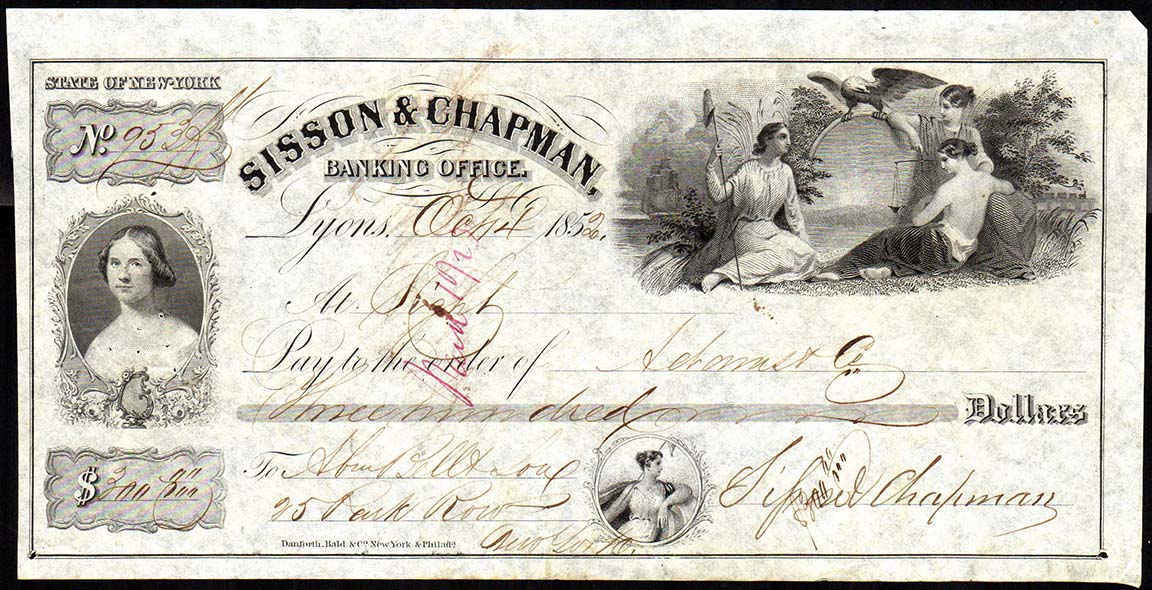 STATE OF NEW-YORK
No. 9534
SISSON & CHAPMAN,
BANKING OFFICE.
Lyons, Oct 4 1852,
At Sight
Pay to the order of Adams & Co
Three hundred Dollars
$300
To Abm Bell & Sons
25 Park Row
New York
Chapman
Danforth, Bald & Co. New York & Philada.